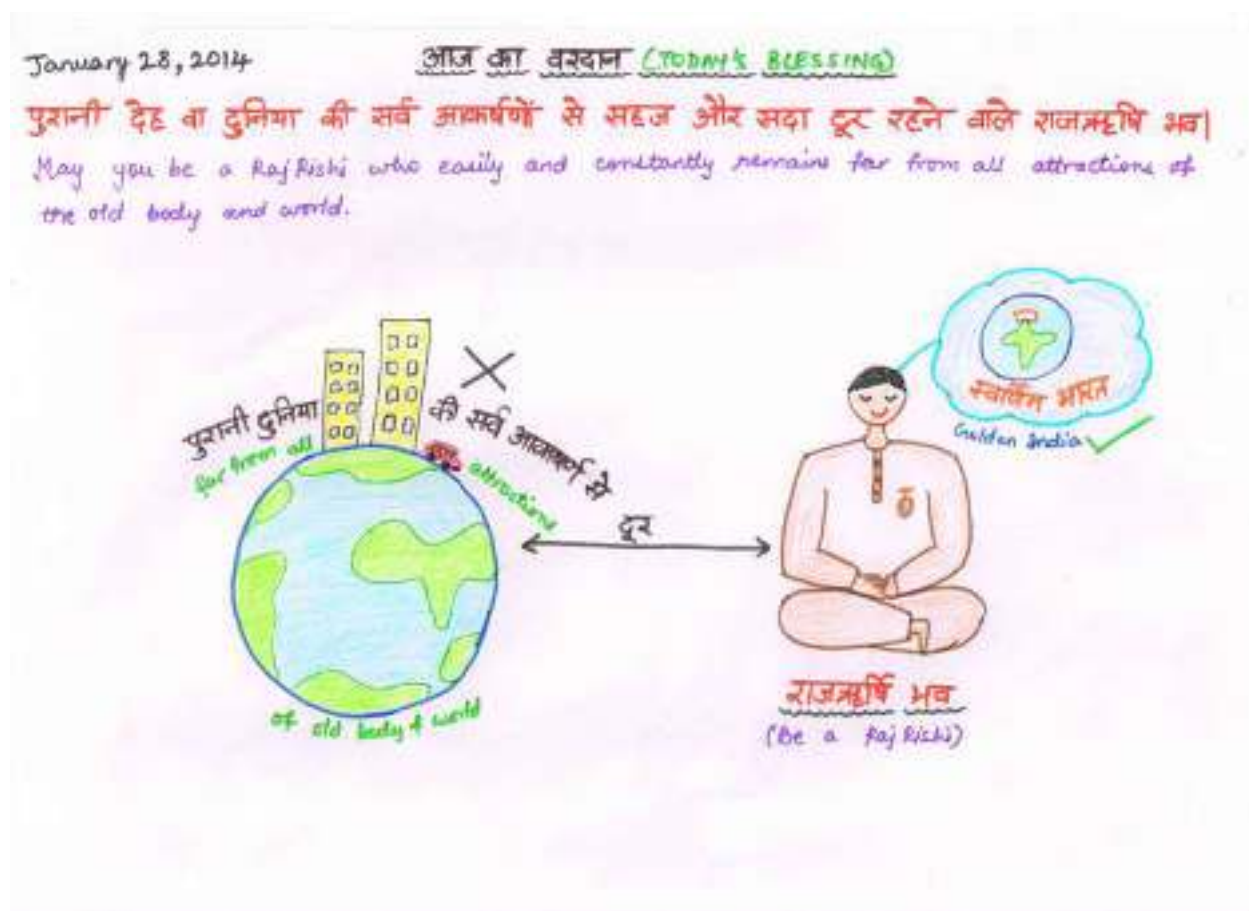 January 28, 2014
आज का वरदान (TODAY'S BLESSING)
पुरानी देह वा दुनिया की सर्व आकर्षणों से सहज और सदा दूर रहने वाले राजऋषि भव|
May you be a Raj Rishi who easily and constantly remains far from all attractions of
the old body and world.
पुरानी दुनिया की सर्व आकर्षण से
दूर
far from all attractions
of old body & world
स्वर्णिम भारत
Golden India
राजऋषि भव
(Be a Raj Rishi)